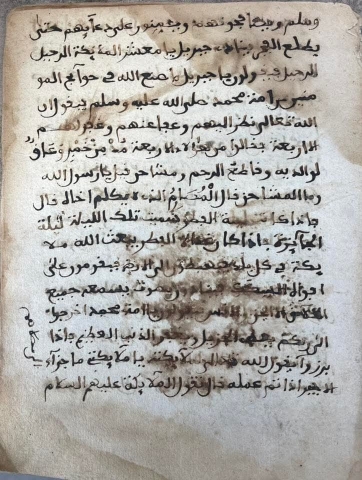 وسلم ويصا فحونهم ويومنون على دعايهم حتى
يطلع الفجر فينادي جبريل يا معشر الملايكة الرحيل
الرحيل فيقولون يا جبريل ما صنع الله في حوايج المو
منين من امة محمد صلى الله عليه وسلم فيقول ان
الله تعالى نظر اليهم وعفا عنهم وغفر لهم الا
الاربعة فقالوا من هؤلاء الاربعة مدمن خمر وعاق
لوالديه وقاطع الرحم ومشاحن قيل يا رسول الله
وما المشاحن قال المصارم الذي لا يكلم اخاه قال
فاذا كانت ليلة الفطر سميت تلك الليلة ليلة
الجايزة فاذا كان غداة الفطر يبعث الله ملا
يكة في كل بلد فيهبطون الى الارض فيقومون على
افواه السكك فينادون بصوت يسمعه جميع
الخلايق الا الجن والانس فيقولون يا امة محمد اخرجوا
الى ربكم يعطي الجزيل ويغفر الذنب العظيم فاذا
برزوا يقول الله تعالى للملايكة يا ملايكتي ما جزاء
الاجير اذا تم عمله قال تقول الملايكة عليهم السلام